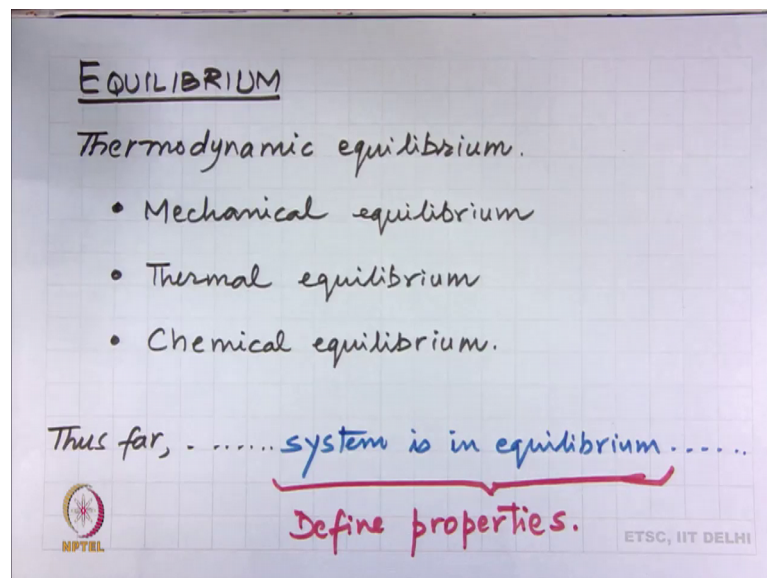 EQUILIBRIUM
Thermodynamic equilibrium.
• Mechanical equilibrium
• Thermal equilibrium
• Chemical equilibrium.
Thus far, . ...... system is in equilibrium ......
Define properties.
NPTEL
ETSC, IIT DELHI